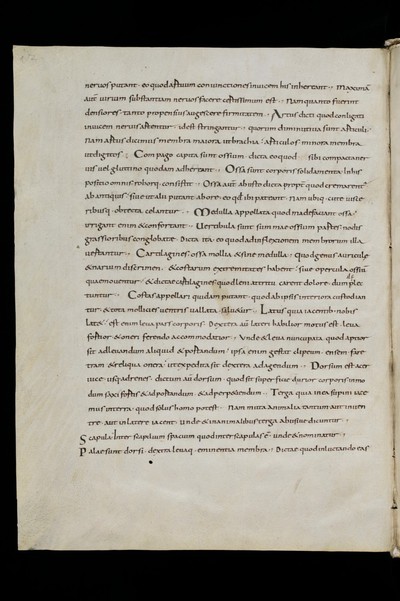 nervos putant · eo quod artuum coniunctiones invicem his inhereant · maximā
aut virium substantiam nervos facere certissimum est · nam quanto fuerint
densiores · tanto propensius augescere firmitatem · Artus dicti quod conligati
invicem nervis artentur · idest stringantur · quorum diminutiva sunt articuli ·
nam artus dicimus membra maiora ut brachia · articulos minora membra
ut digitos · Compago capita sunt ossium · dicta eo quod sibi compacta ner
vis vel glutino quodam adhereant · Ossa sunt corporis solidamenta · In his
positio omnis roborq; consistit · Ossa aut ab usto dicta propt quod cremarent
ab antiquis · sive ut alii putant ab ore · eo qd ibi pateant · nam ubiq; cute visce
ribusq; obtecta celantur · Medulla appollata quod madefaciant ossa ·
Vertibula sunt summae ossium partes nodis
grassioribus conglobate · Dicta ita · eo quod ad inflexionem membrorum illa
vertantur · Cartilagines · ossa mollia & sine medulla · quod genus auricule
& narium discrimen · & costarum extremitates habent · sive opercula ossiū
quae moventur · & dictae cartilagines quod leni attritu carent dolore dum flec
tuntur · Costas appollari quidam putant · quod ab ipsis interiora custodian
tur · & tota mollicies ventris vallata salvetur · Latus quia iacentib; nobis
latet · est enim leva pars corporis · Dextera aū lateri habilior motus est · leva
fortior · & oneri ferendo accommodatior · Unde & leva nuncupata · quod aptior
sit ad levandum aliquid & portandum · ipsa enim gestat clipeum · ensem · fare
tram · & reliqua onera · ut expedita sit dextera ad agendum · Dorsum est a cer
vice · usq; ad renes · dictum aū dorsum · quod sit superficies durior corporis in mo
dum saxi fortis & ad portandum · & ad perpetiendum · Terga quia in ea supini iace
mus in terra · quod solus homo potest · nam muta animalia tantum aut in ven
tre · aut in latere iacent · unde & in animalibus terga abusive dicuntur ·
Scapula · Inter scapilium spacium quod inter scapulas ē · unde & nominatur ·
Palae sunt dorsi · dextra levaq; eminentia membra · Dictae quod in luctando eas